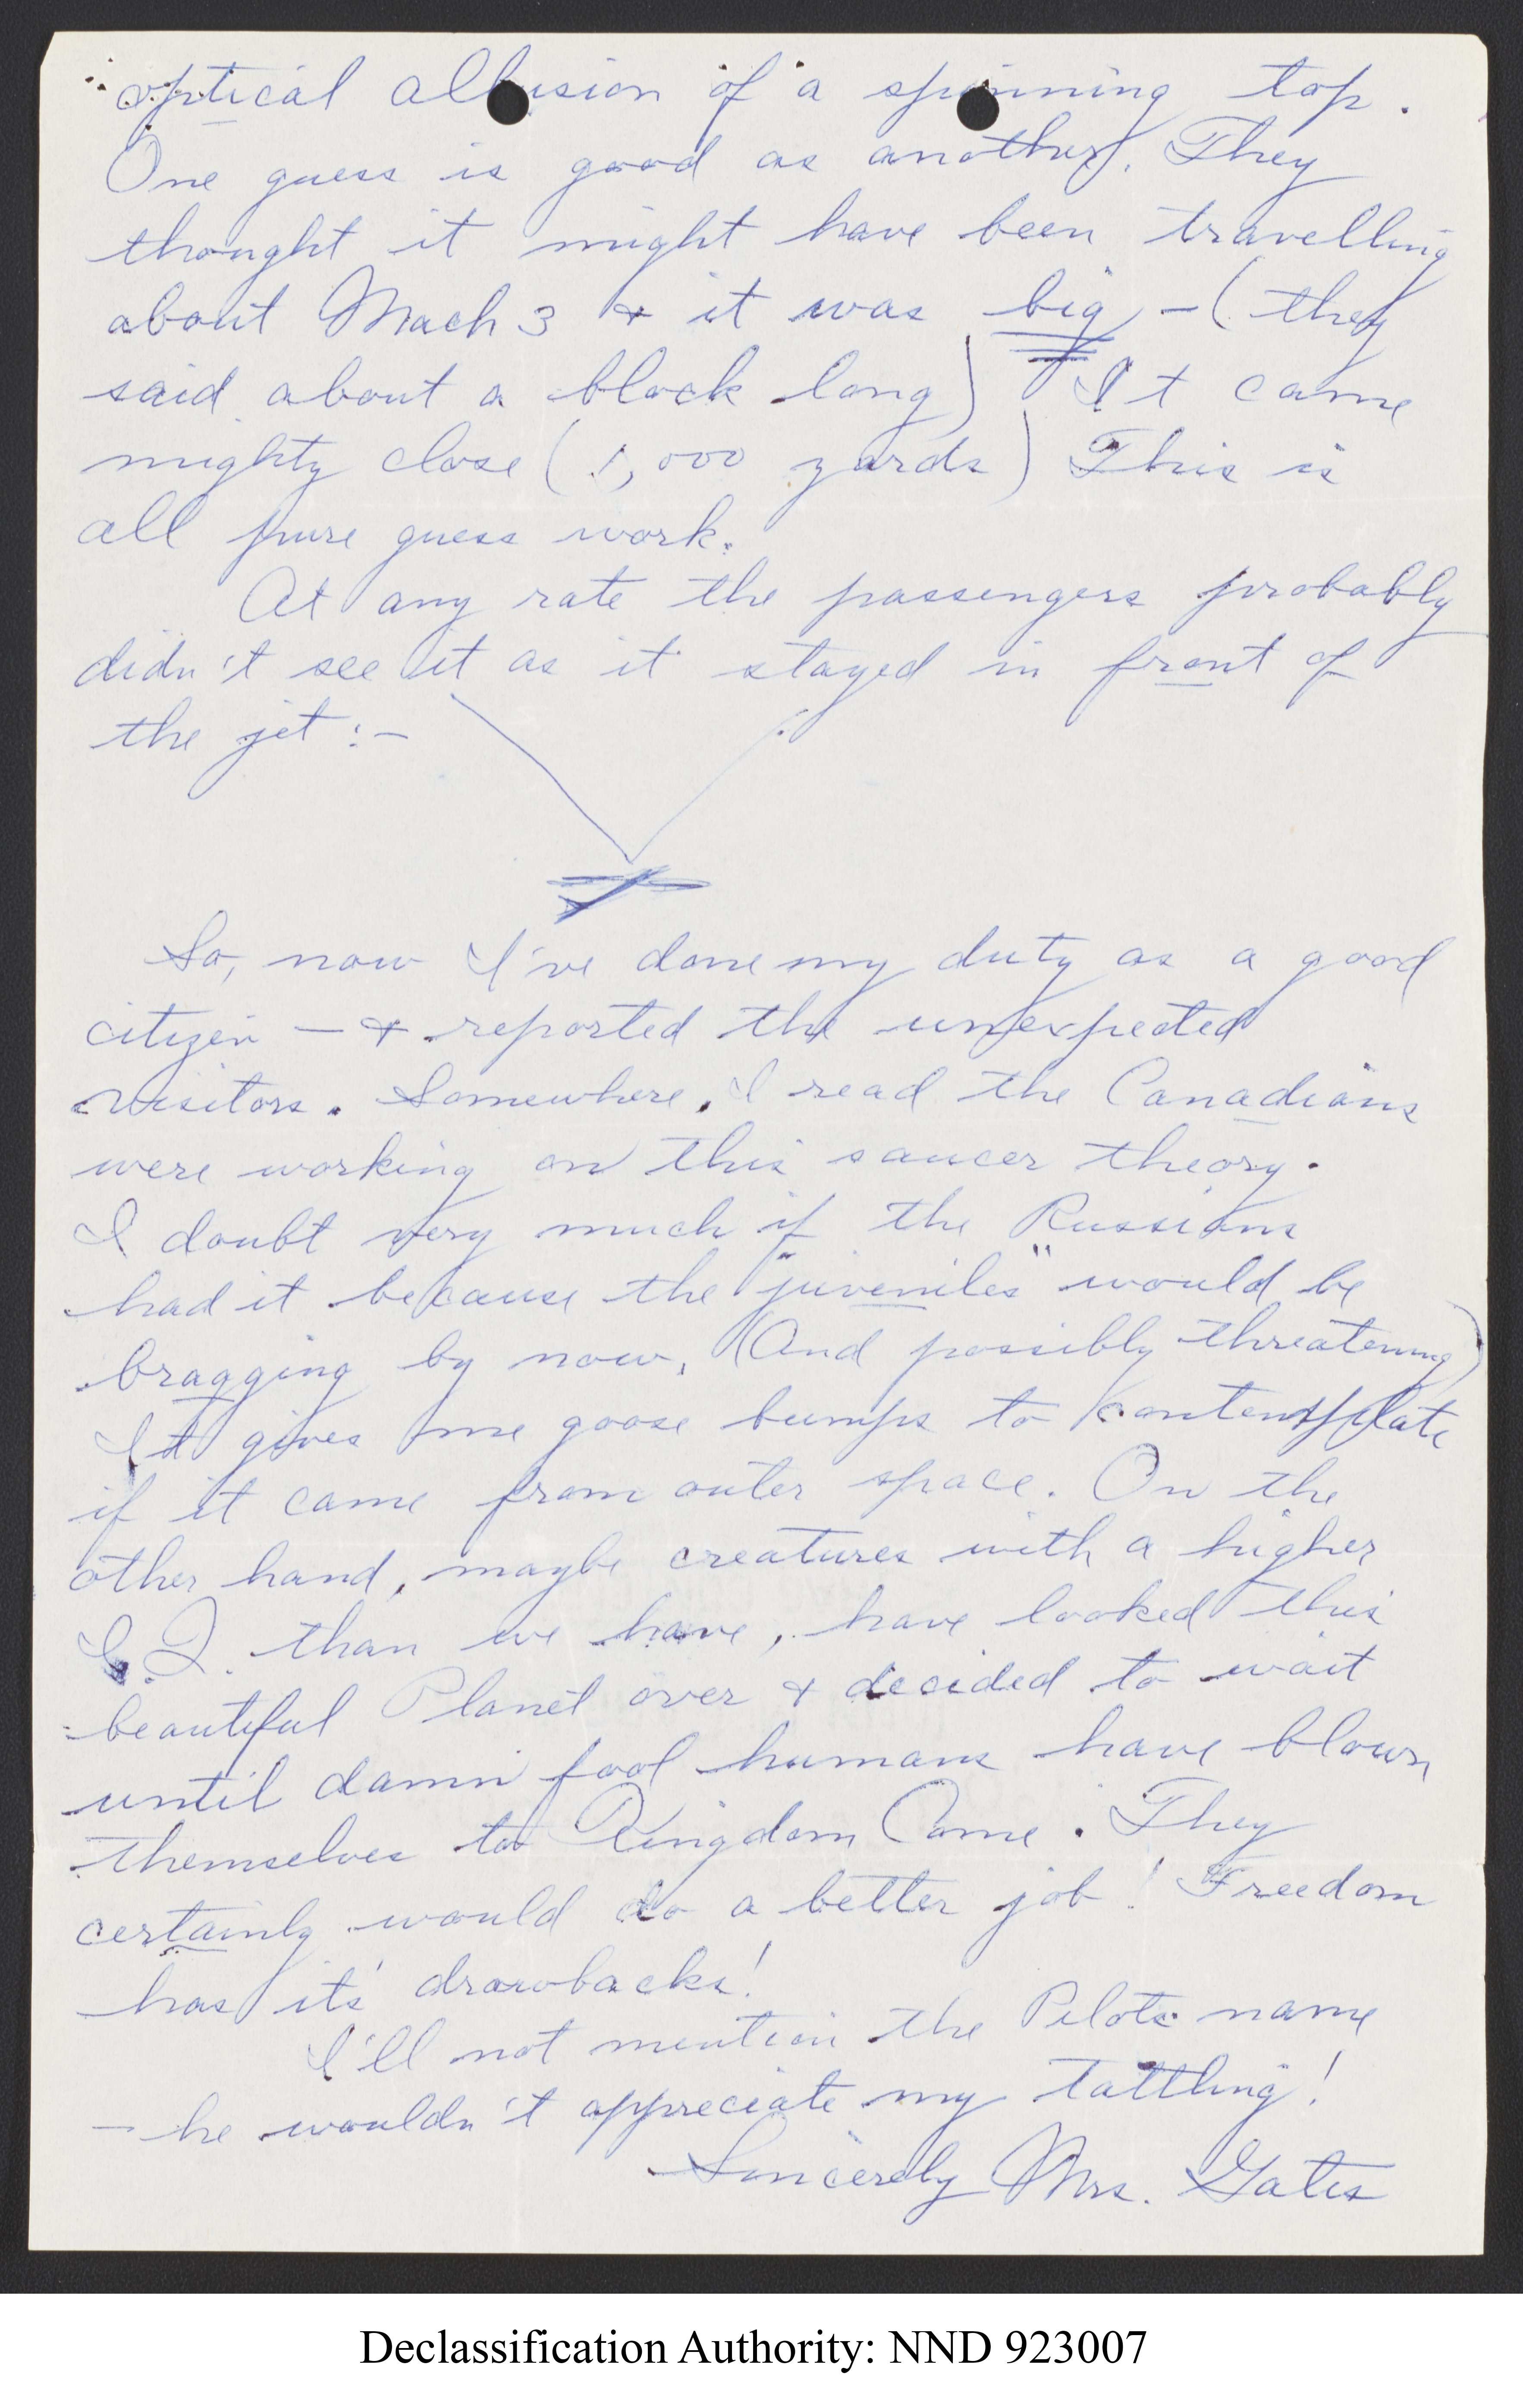 optical allusion of a spinning top.
One guess is good as another. They
thought it might have been travelling
about Mach 3 & it was big - (they
said about a block long) It came
mighty close (1,000 yards) This is
all pure guess work.
At any rate the passengers probably
didn't see it as it stayed in front of
the jet :-
So, now I've done my duty as a good
citizen - & reported the unexpected
visitors. Somewhere, I read the Canadians
were working on this saucer theory.
I doubt very much if the Russians
had it because the "juveniles" would be
bragging by now, (And possibly threatening)
It gives me goose bumps to contemplate
if it came from outer space. On the
other hand, maybe creatures with a higher
I.Q. than we have, have looked this
beautiful Planet over & decided to wait
until damn fool humans have blown
themselves to Kingdom Come. They
certainly would do a better job! Freedom
has it's drawbacks!
I'll not mention the Pilots name
- he wouldn't appreciate my tattling!
Sincerely Mrs. Gates
Declassification Authority: NND 923007